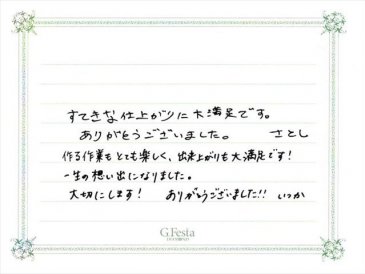 すてきな仕上がりに大満足です。
ありがとうございました。 さとし
作る作業もとても楽しく、出来上がりも大満足です!
一生の想い出になりました。
大切にします! ありがとうございました!! いつか
G.Festa